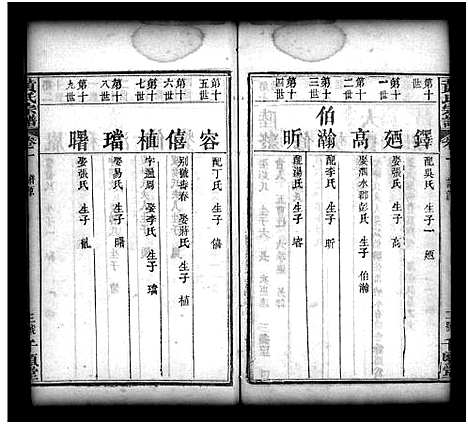 第十世
鐸
配吳氏 生子一 廼
第十一世
廼
娶張氏 生子 高
第十二世
高
娶泗水郡彭氏 生子 伯瀚
第十三世
伯瀚
配李氏 生子 昕
第十四世
昕
配湯氏 生子 容
第十五世
容
配丁氏 生子 僖
第十六世
僖
別號春 娶蔣氏 生子 植
第十七世
植
字 周 娶李氏 生子 璫
第十八世
璫
娶易氏 生子 曙
第十九世
曙
娶張氏 生子
黃氏宗譜
卷一
千頃堂